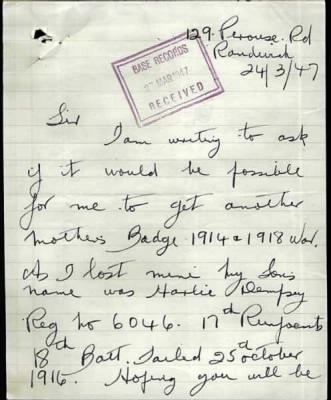 129 Perouse Rd
Randwick
24/3/47
BASE RECORDS
MAR 1947
RECEIVED
Sir
I am writing to ask
if it would be possible
for me to get another
mothers Badge 1914 & 1918 War.
As I lost mine my Sons
name was Harlie Dempsey
Reg No 6046. 17th Reinforcements
18th Batt. Sailed 25th october
1916. Hoping you will be